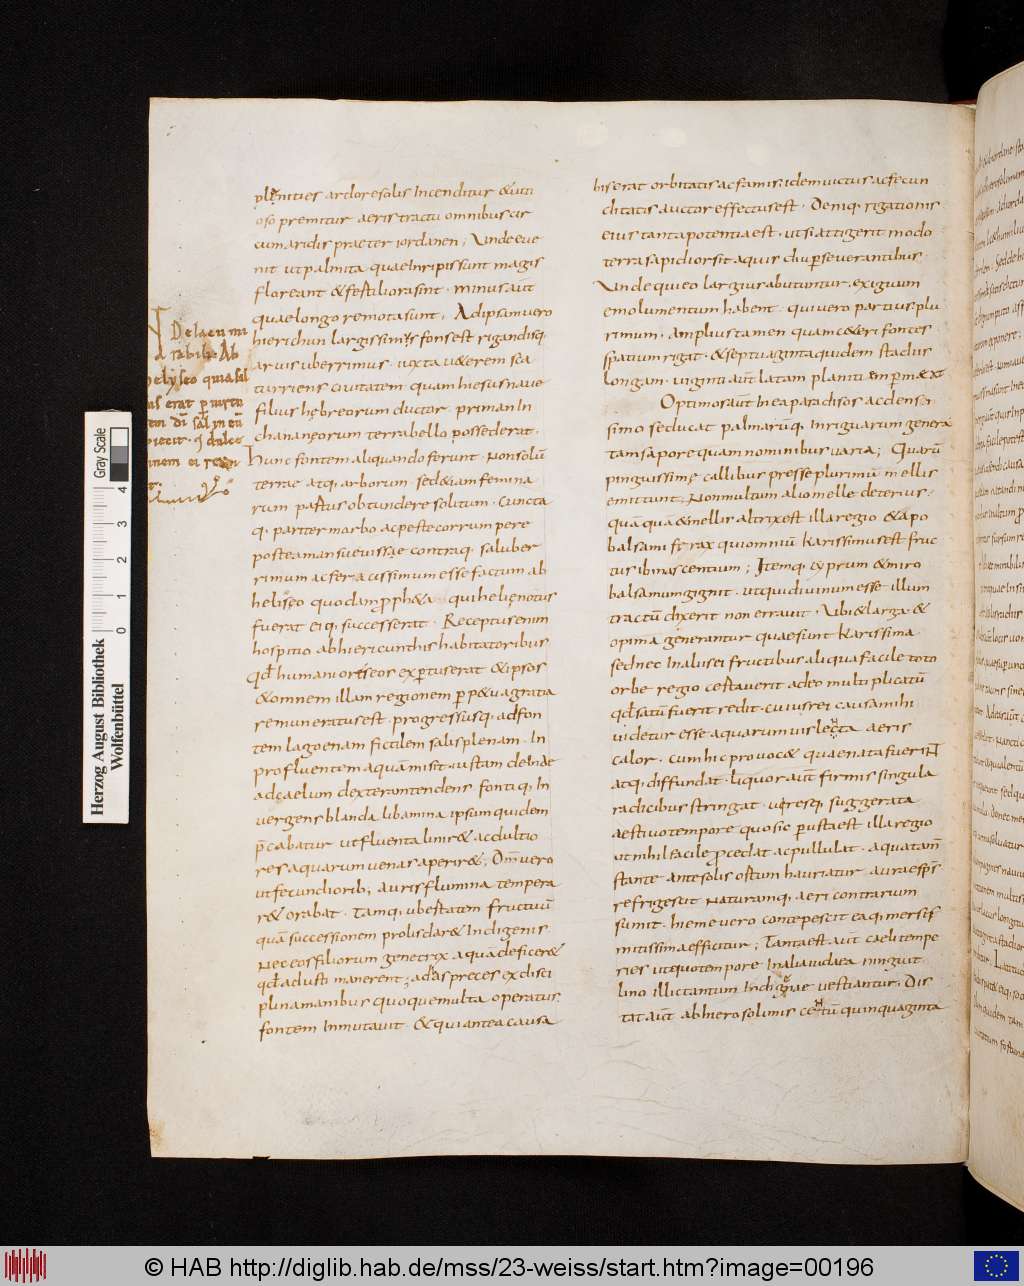 plenities ardore solis Incenditur & uiti
oso premitur aeris tractu omnibus cir
cum aridis praeter iordanen; Unde eue
nit ut palmita quae In ripis sunt magis
floreant & fertiliora sint · minus aūt
quae longo remota sunt; Ad ipsam uero
hierichun largissimus fons est rigandisq;
aruis uberrimus · iuxta u&erem sca
turriens ciuitatem quam hiesus naue
filius hebreorum ductor · primam In
chananeorum terra bello possederat ·
hunc fontem aliquando ferunt · Non solū
terrae atq; arborum · sed &iam femina
rum partus obtundere solitum · cuncta
q; pariter morbo ac peste corrumpere
postea mansueuisse contraq; saluber
rimum ac feracissimum esse factum ab
heliseo quodam proph&a · qui heliae notus
fuerat eiq; successerat · Receptus enim
hospitio ab hiericunthis habitatoribus
qd humaniores eos expertus erat & ipsos
& omnem illam regionem perp&ua gratia
remuneratus est · progressusq; ad fon
tem lagoenam fictilem salis plenam · In
profluentem aquam misit · iustam deinde
ad caelum dexteram tendens fontiq; In
uergens blanda libamina ipsum quidem
precabatur ut fluenta lenir& ac dultio
res aquarum uenas aperir&; Dm uero
ut fecundiorib; auris flumina tempera
r& orabat · Tamq; ubertatem fructuū
quā successionem prolis dar& Indigenis
Nec eos filiorum genetrix aqua deficer&
qd adusti manerent; ad has preces ex disci
plina manibus quoque multa operatus
fontem Inmutauit · & qui antea causa
De lacu mi
rabile Ab
helyseo quia sal
dulce
bis erat orbitatis ac famis · idem uictus ac fecun
ditatis auctor effectus est · Deniq; rigationis
eius tanta potentia est · ut si attigerit modo
terra sapidior sit aquis diu perseuerantibus ·
Unde qui eo largius abutuntur · exiguum
emolumentum habent · qui uero partius · plu
rimum · Amplius tamen quam c&eri fontes
spatium rigat · & septuaginta quidem stadiis
longam · uiginti aūt latam planitiem perm&at
Optimos aūt In ea paradisos ac densis
simo sed ucat palmarūq; Inriguarum genera
tam sapore quam nominibus uaria; Quarū
pinguissimę callibus presse plurimū mellis
emittunt · Non multum alio melle deterius ·
quāquā & mellis altrix est illa regio & apo
balsami ferax qui omniū karissimus est fruc
tus ibi nascentium; Itemq; cyprum & miro
balsamum gignit · ut qui diuinum esse illum
tractū dixerit non erraut · Ubi & larga · &
opima generantur quae sunt karissima ·
sed nec In aliis ei fructibus aliqua facile toto
orbe regio certauerit adeo multiplicatū
qd satū fuerit redit · cuius rei causa mihi
uidetur esse aquarum uis lecta aeris
calor · cum hic prouoc& quae nata fuerint
atq; diffundat · liquor aūt firmis singula
radicibus stringat · uiresq; suggerata
aestiuo tempore quo sic perusta est illa regio
ut nihil facile procedat ac pullulat · aqua tam̄
stante ante solis ostum hauriatur aura
refrigescit Naturamq; aeri contrarum
sumit · hieme uero contepescit eaq; mersis
mitissima efficitur; Tanta est aūt caeli tempe
ries ut quo tempore In alia iudaea ninguit ·
lino illic tantum Indigenae uestiantur; Dis
tat aūt ab hierosolimis centū quinquaginta
Herzog August Bibliothek
Wolfenbüttel
Gray Scale
0 1 2 3 4
© HAB http://diglib.hab.de/mss/23-weiss/start.htm?image=00196